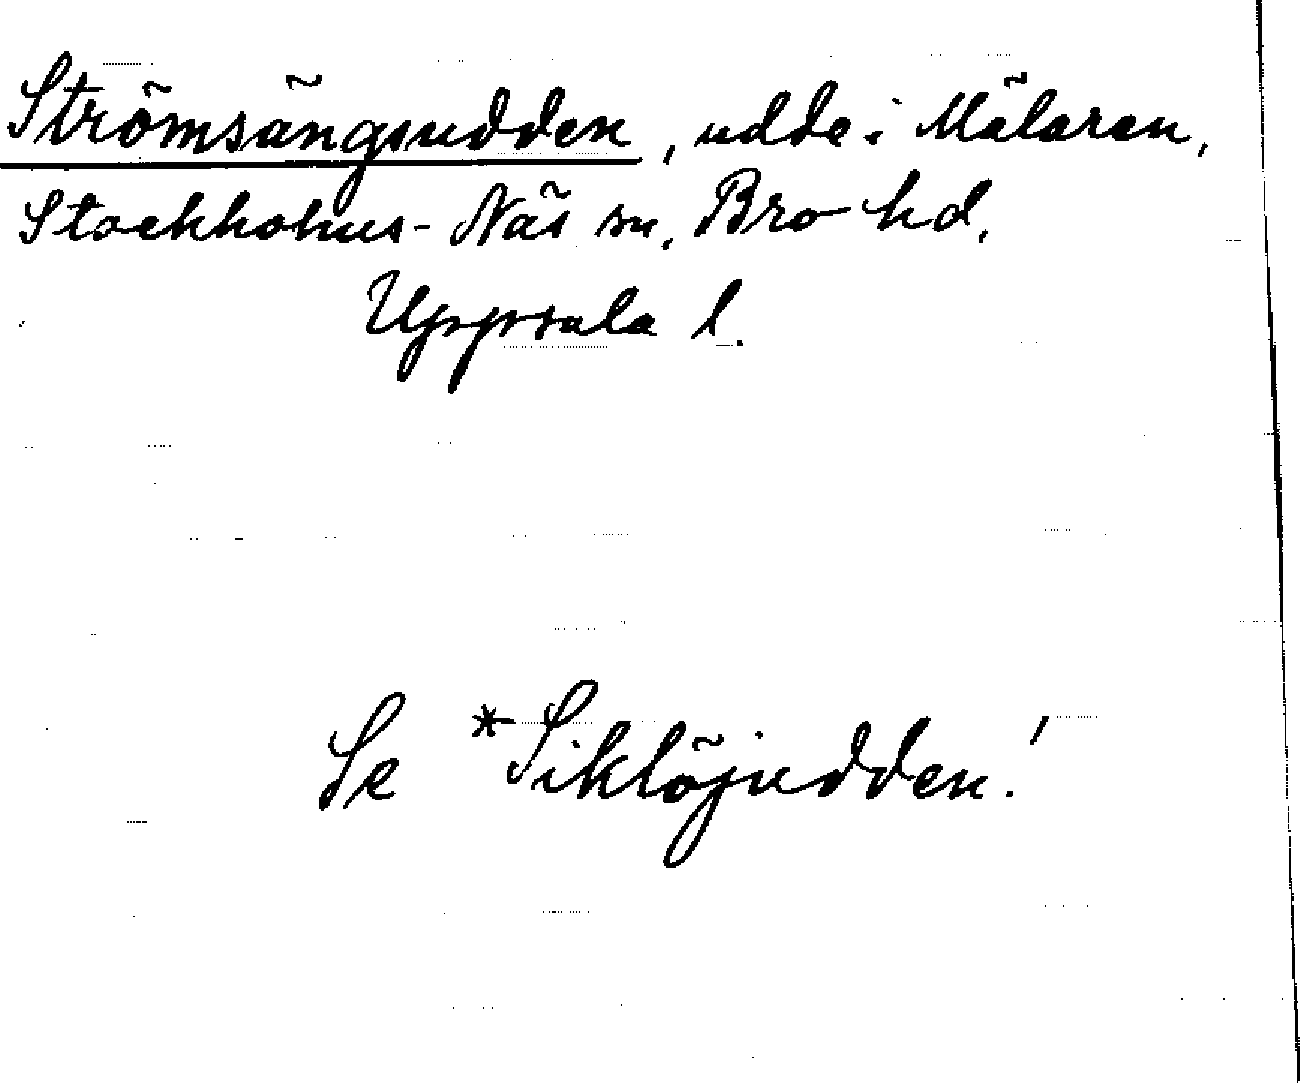 Strömsängsudden, udde i Mälaren,
Stockholms-Näs sn, Bro hd,
Uppsala l.
Se *Siklöjudden!